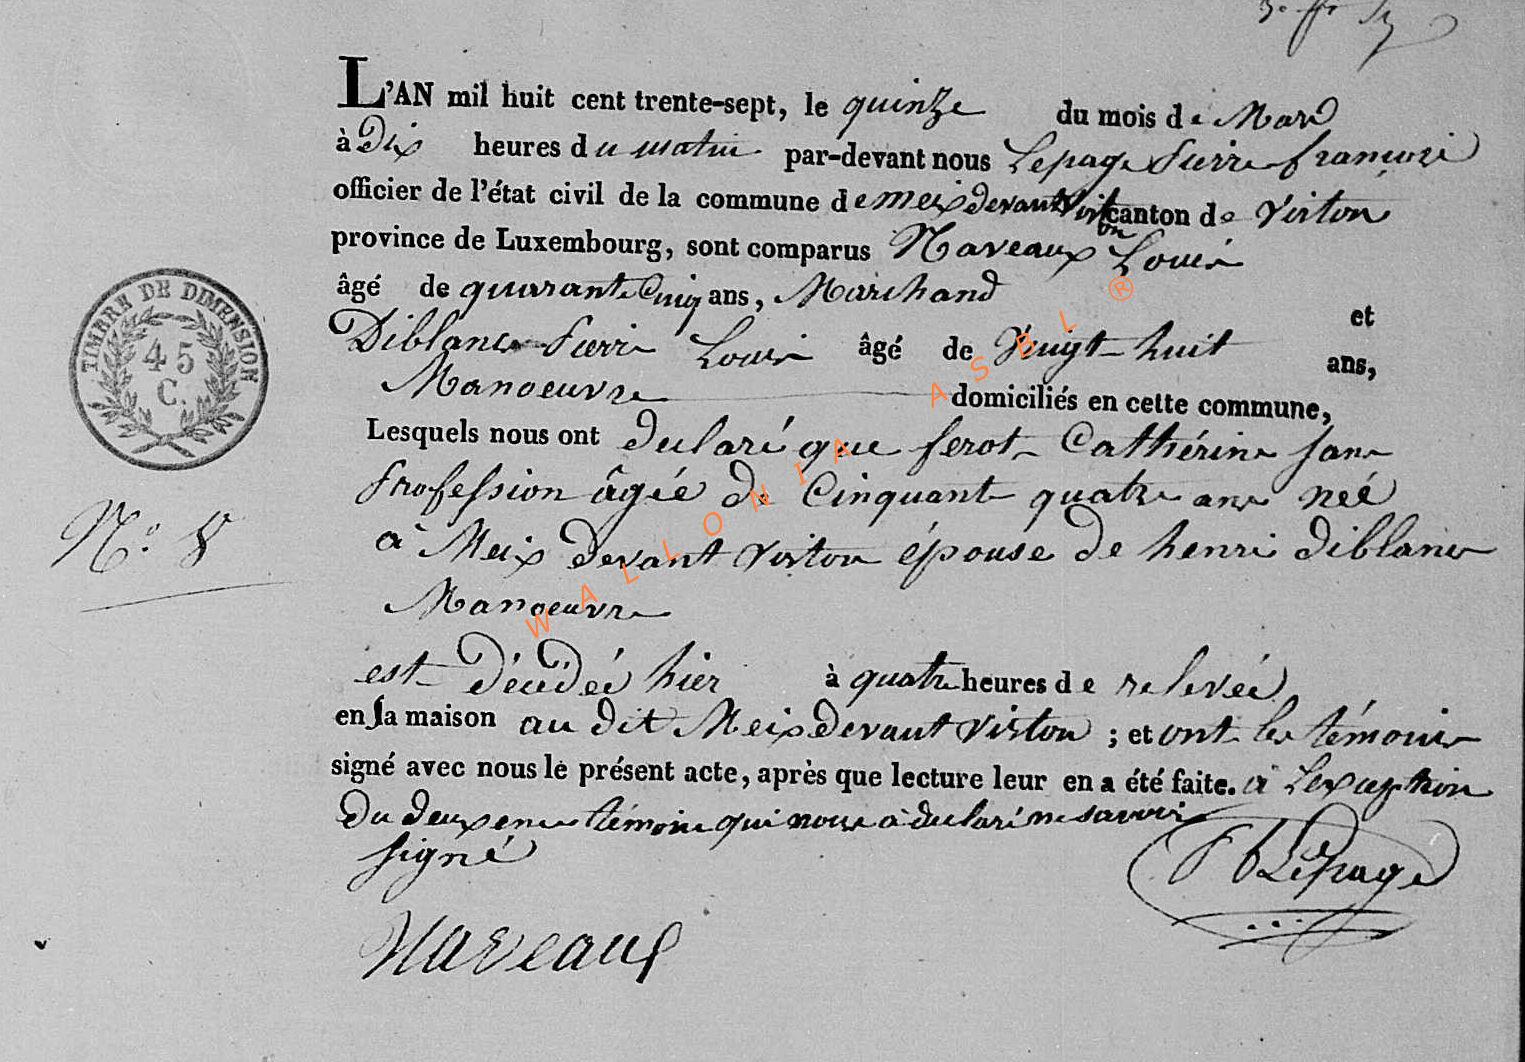 L'AN mil huit cent trente-sept, le quinze du mois de Mars
à Dix heures du matin par-devant nous Lepage Pierre françois
officier de l'état civil de la commune de meix devant Virton canton de Virton
province de Luxembourg, sont comparus Naveaux Louis
âgé de quarante Cinq ans, Marchand et
Diblanc Pierre Louis âgé de Vingt-huit ans,
Manoeuvre domiciliés en cette commune,
Lesquels nous ont declaré que ferot Cathérine sans
Profession âgée de Cinquante quatre ans neé
à Meix devant Virton épouse de henri diblanc
Manoeuvre
est décédeé hier à quatre heures de relevée
en sa maison au dit Meix devant Virton ; et ont les témoins
signé avec nous le présent acte, après que lecture leur en a été faite. à Lexception
du deuxeme témoin qui nous a declaré ne savoir
signé
PF Lepage
Naveaux
TIMBRE DE DIMENSION
45
C.
N° 8
WALLONIA ASBL ®